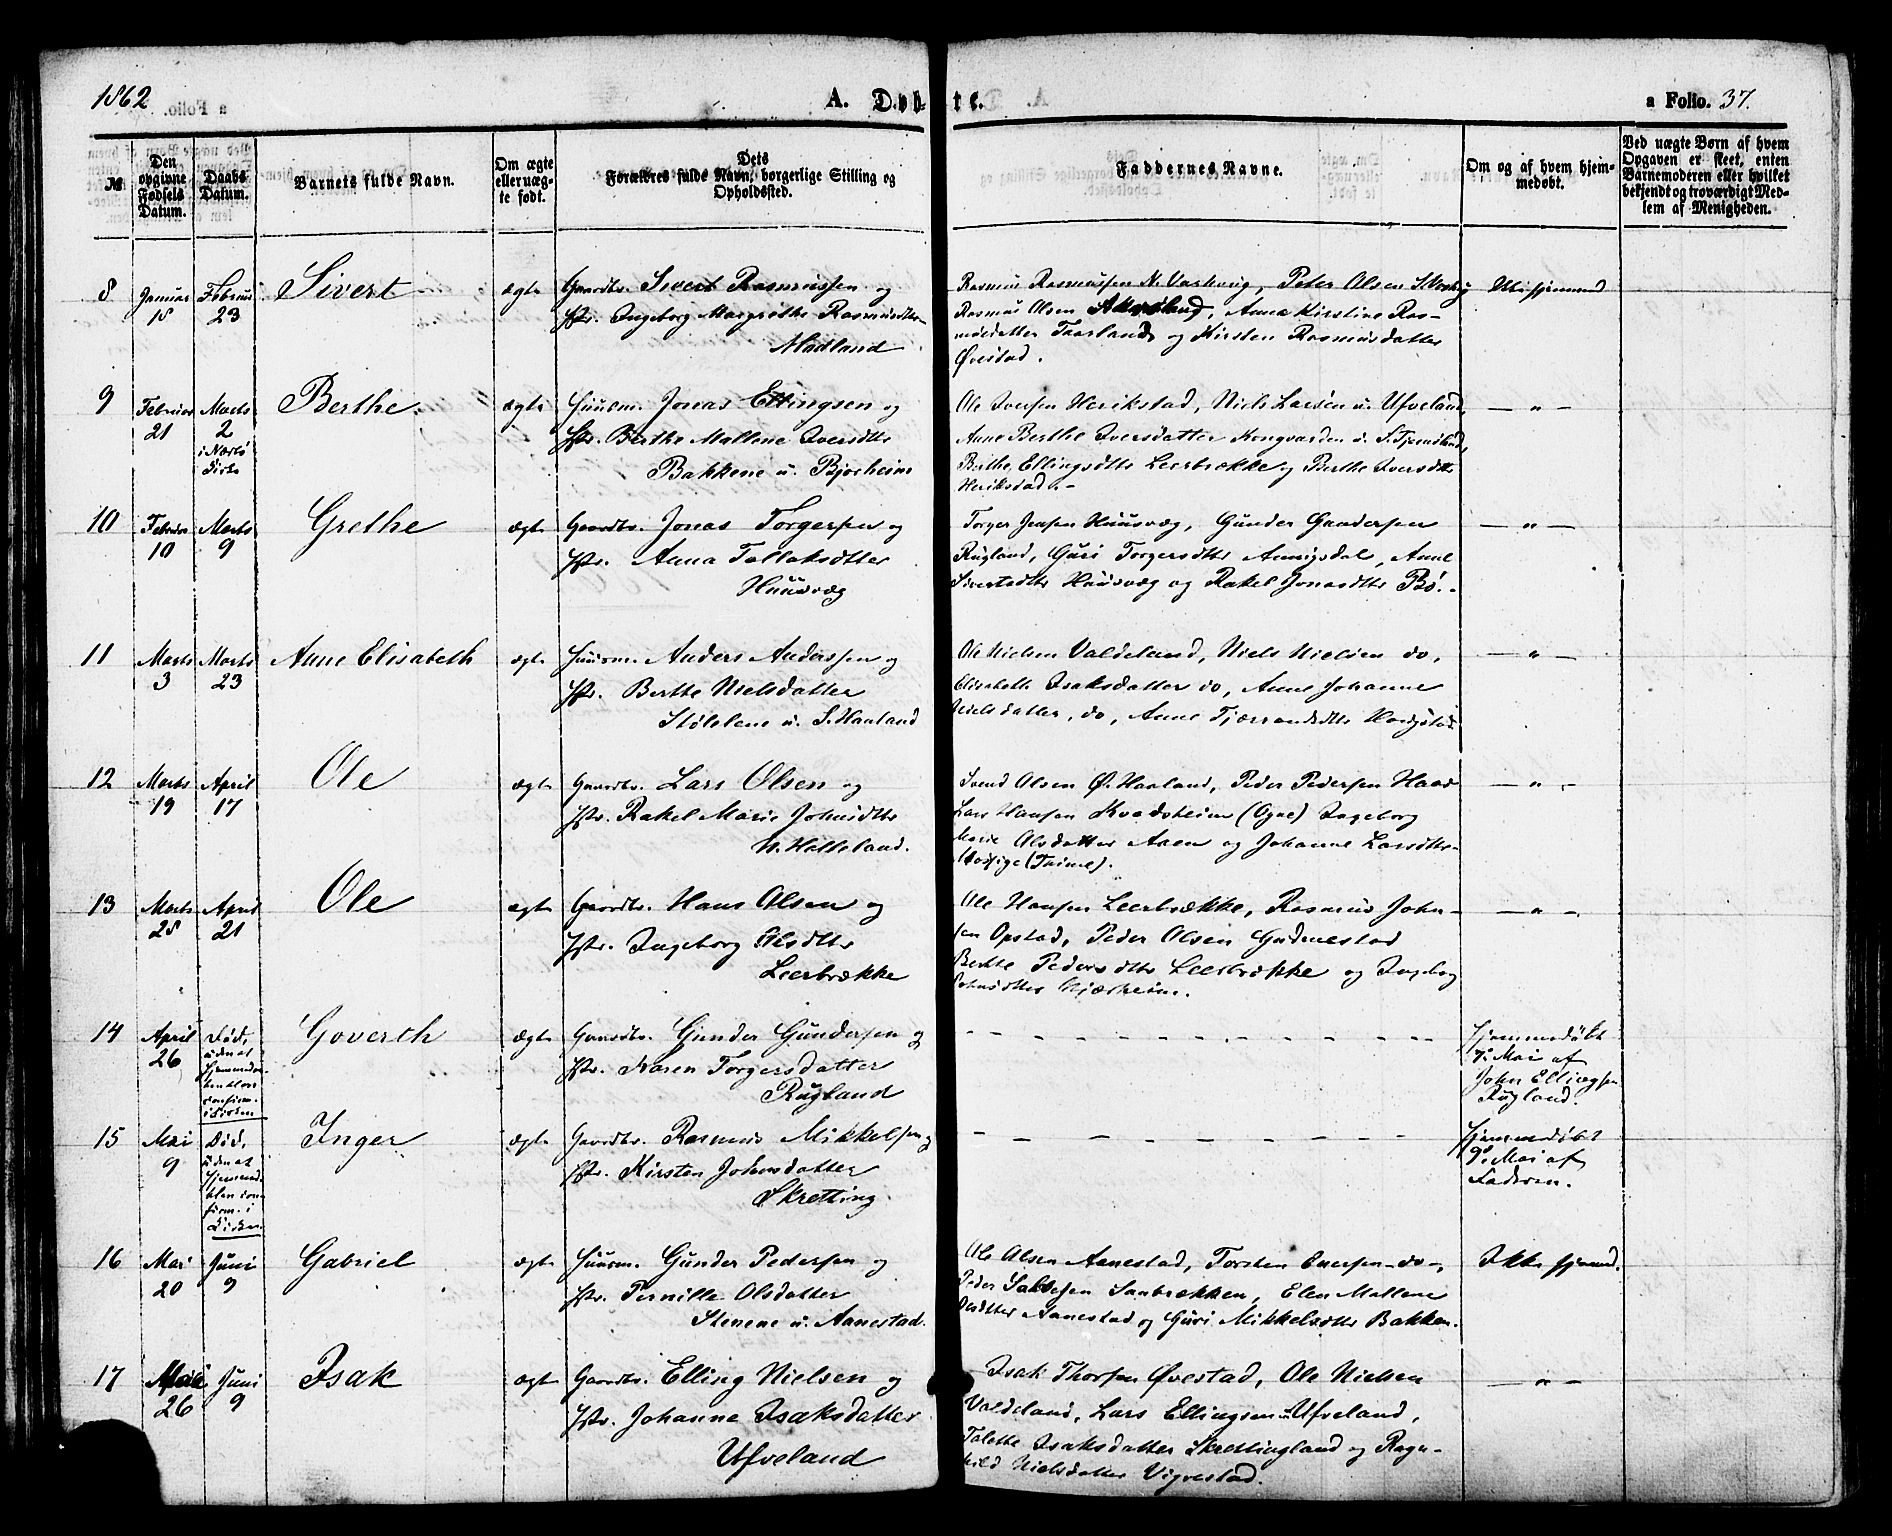 1862
A. Døbte.
a Folio. 37.
№
Den opgivne Fødsels Datum.
Daabs Datum.
Barnets fulde Navn.
Om ægte eller uægte født.
Dets Forældres fulde Navn, borgerlige Stilling og Opholdssted.
Faddernes Navne.
Om og af hvem hjemmedøbt.
Ved uægte Børn af hvem Opgaven er skeet, enten Barnemoderen eller hvilket bekjendt og troværdigt Medlem af Menigheden.
8 Januar 18 Februar 23 Sivert ægte
Gaardbr. Sivert Rasmussen og
Hstr. Ingeborg Margrethe Rasmusdtr
Madland
Rasmus Rasmussen N. Varhaug, Peter Olsen S. Varhaug
Rasmus Olsen Aarsland, Anna Kirstine Ras-
musdatter Thorland og Kirsten Rasmusdatter
Øvestad.
9 Februar 21 Marts 2 i Nærbø Kirke Berthe ægte
Huusm. Jonas Ellingsen og
Hstr. Berthe Mallene Iversdtr
Bakkene u. Bjorheim
Ole Iversen Herikstad, Niels Larsen u. Ufveland,
Anne Berthe Iversdatter Kongvarden u. S. Tjemsland,
Berthe Ellingsdtr Leerbrække og Berthe Iversdtr
Herikstad. -
— " —
10 Februar 10 Marts 9 Grethe ægte
Gaardbr. Jonas Torgersen og
Hstr. Anna Tollaksdtter
Huusvæg
Torger Jensen Huusvæg, Gunder Gundersen
Rugland, Guri Torgersdtr Aunigsdal, Anne
Sivertsdtr Huusvæg og Rakel Jonasdtr Bø. -
— " —
11 Marts 3 Marts 23 Anne Elisabeth ægte
Huusm. Anders Andersen og
Hstr. Berthe Nielsdatter
Stølelene u. S. Haaland
Ole Nielsen Valdeland, Niels Nielsen do,
Elisabeth Isaksdatter do, Anne Johanne
Nielsdatter, do, Anne Tjærrandsdtr Haugstad
— " —
12 Marts 19 April 17 Ole ægte
Gaardbr. Lars Olsen og
Hstr. Rakel Marie Johnsdtr
N. Helleland.
Svend Olsen Ø. Haaland, Peder Pedersen Haar
Lars Hansen Kvadsheim (Ogne) Ingeborg
Marie Olsdatter Aaen og Johanne Larsdtr
(Thime).
— " —
13 Marts 25 April 21 Ole ægte
Gaardbr. Hans Olsen og
Hstr. Ingeborg Olsdtr
Leerbrække
Ole Hansen Leerbrække, Rasmus John-
sen Opstad, Peder Olsen Gudmestad
Berthe Pedersdtr Leerbrække og Ingeborg
Johnsdtr Njærheim.
— " —
14 April 26 Død, uden at Hjemmedaaben blev confirm. i Kirken Goverth ægte
Gaardbr. Gunder Gundersen og
Hstr. Karen Torgersdatter
Rugland
Hjemmedøbt
7. Mai af
John Ellingsen
Rugland.
15 Mai 9 Død, uden at Hjemmed. blev confirm. i Kirken Inger ægte
Gaardbr. Rasmus Mikkelsen og
Hstr. Kirsten Johnsdatter
Skretting
Hjemmedøbt
9. Mai af
Faderen.
16 Mai 20 Juni 9 Gabriel ægte
Huusm. Gunder Pedersen og
Hstr. Pernille Olsdatter
Stenene u. Aanestad.
Ole Olsen Aanestad, Torsten Enersen do,
Peder Salvesen Saubrækken, Elen Mallene
Olsdtter Aanestad og Guri Mikkelsdtr Bakken.
Ikke hjemmd.
17 Mai 26 Juni 9 Isak ægte
Gaardbr. Elling Nielsen og
Hstr. Johanne Isaksdatter
Ufveland
Isak Thorsen Øvestad, Ole Nielsen
Valdeland, Lars Ellingsen Ufveland,
Talette Isaksdatter Skrettingland og Ragn-
hild Nielsdatter Vigrestad.
— " —